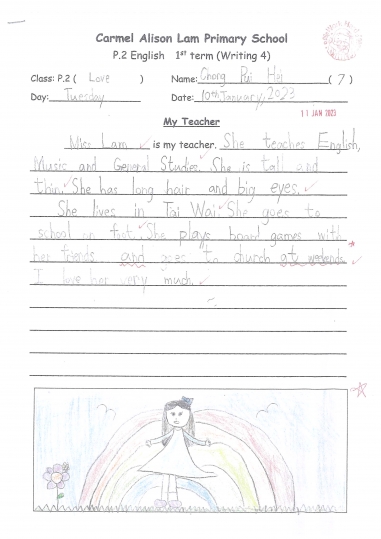 Carmel Alison Lam Primary School
P.2 English 1st term (Writing 4)
Class: P.2 ( Love ) Name: Chong Pui Hei ( 7 )
Day: Tuesday Date: 10th January, 2023
11 JAN 2023
My Teacher
Miss Lam is my teacher. She teaches English,
Music and General Studies. She is tall and
thin. She has long hair and big eyes.
She lives in Tai Wai. She goes to
school on foot. She plays board games with
her friends and goes to church at weekends.
I love her very much.